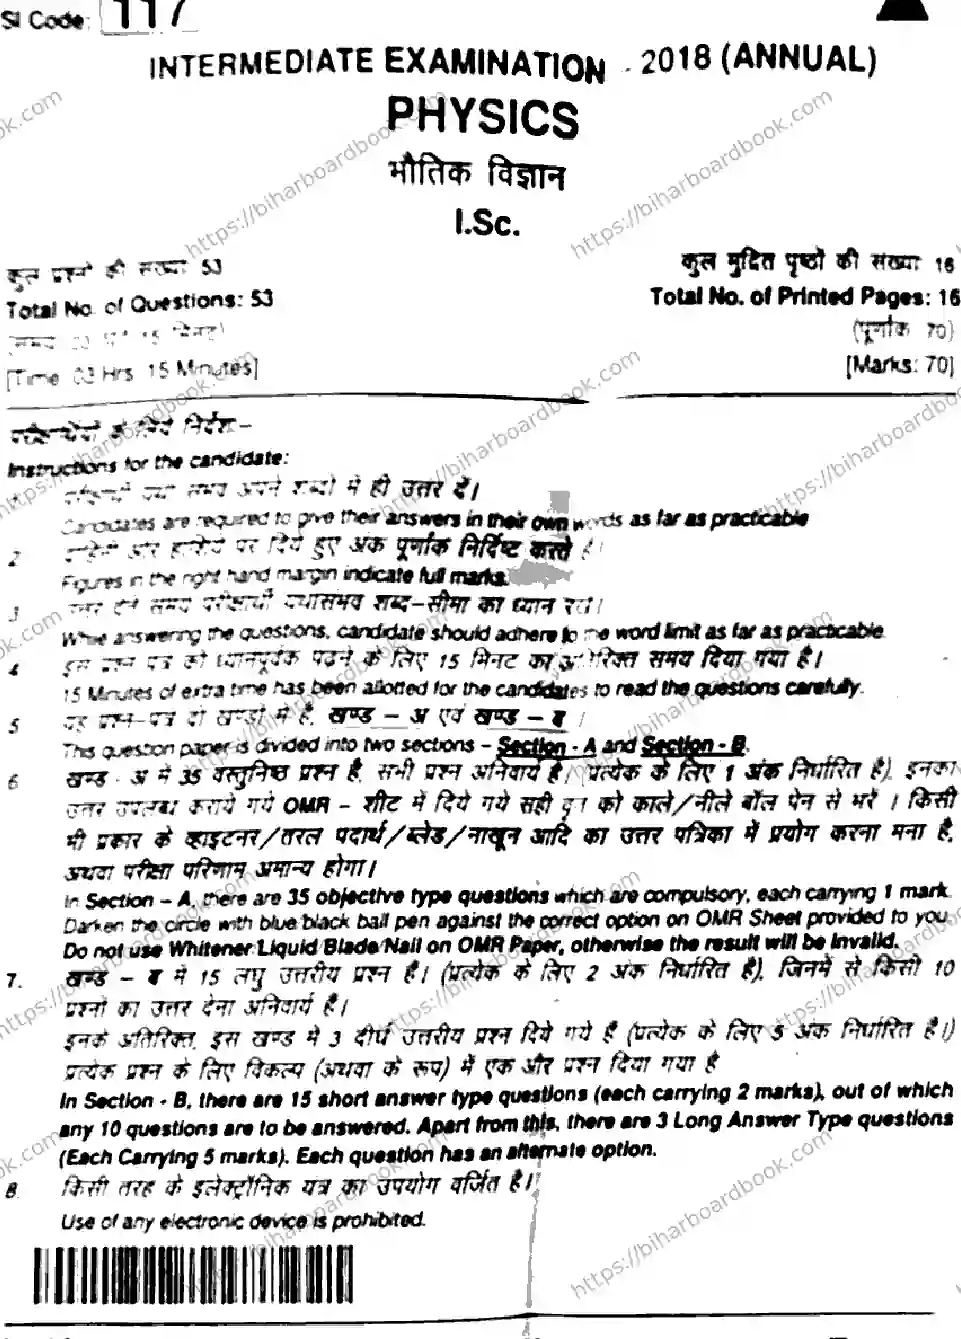 Sl Code: 117
INTERMEDIATE EXAMINATION - 2018 (ANNUAL)
PHYSICS
भौतिक विज्ञान
I.Sc.
कुल प्रश्नों की संख्या 53
कुल मुद्रित पृष्ठों की संख्या 16
Total No. of Questions: 53
Total No. of Printed Pages: 16
15 मिनट)
(पूर्णांक 70)
[Time 03 Hrs 15 Minutes]
[Marks: 70]
परीक्षार्थियों के लिये निर्देश:-
Instructions for the candidate:
परीक्षार्थी यथा संभव अपने शब्दों में ही उत्तर दें।
Candidates are required to give their answers in their own words as far as practicable
2 दाहिनी ओर हाशिये पर दिये हुए अंक पूर्णांक निर्दिष्ट करते हैं।
Figures in the right hand margin indicate full marks.
3 उत्तर देते समय परीक्षार्थी यथासंभव शब्द-सीमा का ध्यान रखें।
While answering the questions, candidate should adhere to the word limit as far as practicable
4 इस प्रश्न पत्र को ध्यानपूर्वक पढ़ने के लिए 15 मिनट का अतिरिक्त समय दिया गया है।
15 Minutes of extra time has been allotted for the candidates to read the questions carefully.
5 यह प्रश्न-पत्र दो खण्डों में है, खण्ड - अ एवं खण्ड - ब ।
This question paper is divided into two sections - Section - A and Section - B.
6 खण्ड - अ में 35 वस्तुनिष्ठ प्रश्न है, सभी प्रश्न अनिवार्य है। (प्रत्येक के लिए 1 अंक निर्धारित है), इनका
उत्तर उपलब्ध कराये गये OMR - शीट में दिये गये सही वृत को काले/नीले बॉल पेन से भरें । किसी
भी प्रकार के व्हाइटनर/तरल पदार्थ/ब्लेड/नाखून आदि का उत्तर पत्रिका में प्रयोग करना मना है,
अथवा परीक्षा परिणाम अमान्य होगा।
In Section - A, there are 35 objective type questions which are compulsory, each carrying 1 mark.
Darken the circle with blue/black ball pen against the correct option on OMR Sheet provided to you
Do not use Whitener/Liquid/Blade/Nail on OMR Paper, otherwise the result will be invalid.
7. खण्ड - ब में 15 लघु उत्तरीय प्रश्न है। (प्रत्येक के लिए 2 अंक निर्धारित है), जिनमें से किसी 10
प्रश्नों का उत्तर देना अनिवार्य है।
इनके अतिरिक्त, इस खण्ड में 3 दीर्घ उत्तरीय प्रश्न दिये गये है (प्रत्येक के लिए 5 अंक निर्धारित है।)
प्रत्येक प्रश्न के लिए विकल्प (अथवा के रूप) में एक और प्रश्न दिया गया है
In Section - B, there are 15 short answer type questions (each carrying 2 marks), out of which
any 10 questions are to be answered. Apart from this, there are 3 Long Answer Type questions
(Each Carrying 5 marks). Each question has an alternate option.
8. किसी तरह के इलेक्ट्रॉनिक यंत्र का उपयोग वर्जित है।
Use of any electronic device is prohibited.
https://biharboardbook.com